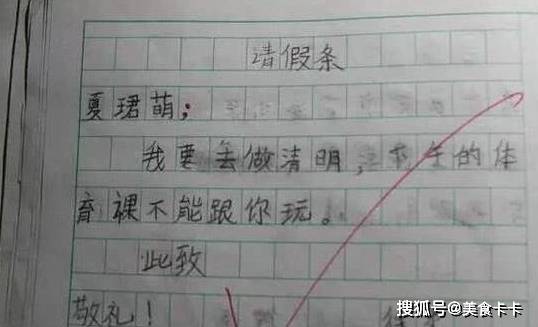 请假条
夏珺萌;
我要去做清明,下午的体
育裸不能跟你玩。
此致
敬礼!
搜狐号@美食卡卡